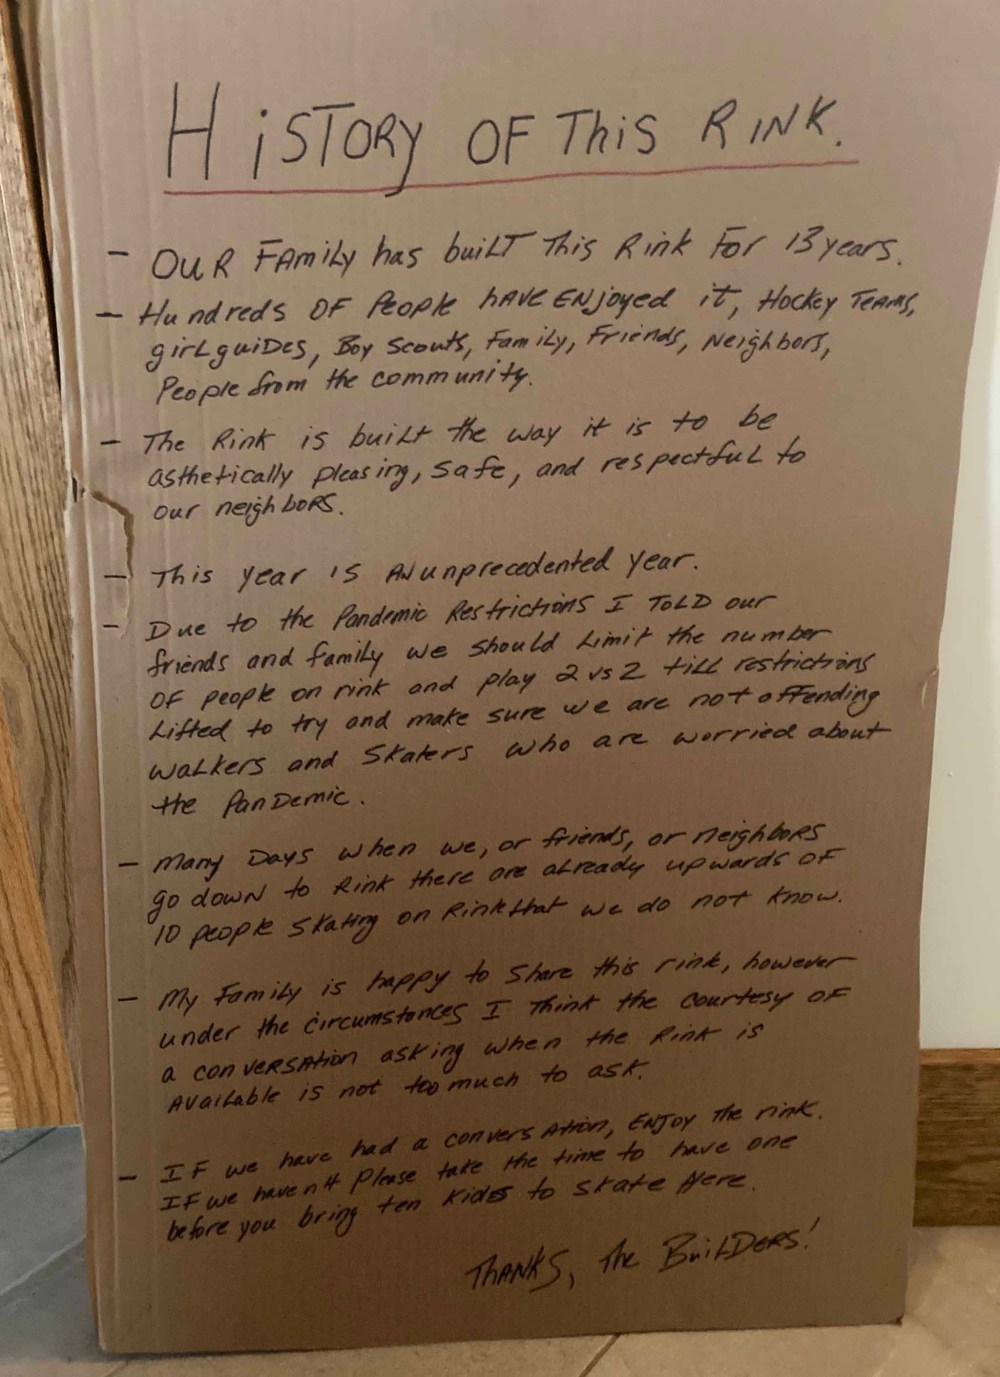 HiSTORY OF This RINK.
- OUR FAMiLy has buiLT This Rink For 13 years.
- Hundreds OF People HAVE ENjoyed it, Hockey TEAMS,
girLguiDes, Boy Scouts, Family, Friends, Neighbors,
People from the community.
- The Rink is buiLt the way it is to be
asthetically pleasing, safe, and respectfuL to
our neighbors.
- This year is AN unprecedented year.
- Due to the Pandemic Restrictions I ToLD our
friends and family we should Limit the number
OF people on rink and play 2 vs 2 tiLL restrictions
Lifted to try and make sure we are not offending
waLkers and Skaters who are worried about
the PanDemic.
- Many Days when we, or friends, or neighbors
go down to Rink there are already upwards OF
10 people skating on Rink that we do not know.
- My Family is happy to share this rink, however
under the circumstances I Think the courtesy OF
a conversation asking when the Rink is
Available is not too much to ask.
- IF we have had a conversation, ENJOY The rink.
IF we haven't Please take the time to have one
before you bring ten Kides to skate Here.
THANKS, The BuiLDERS!